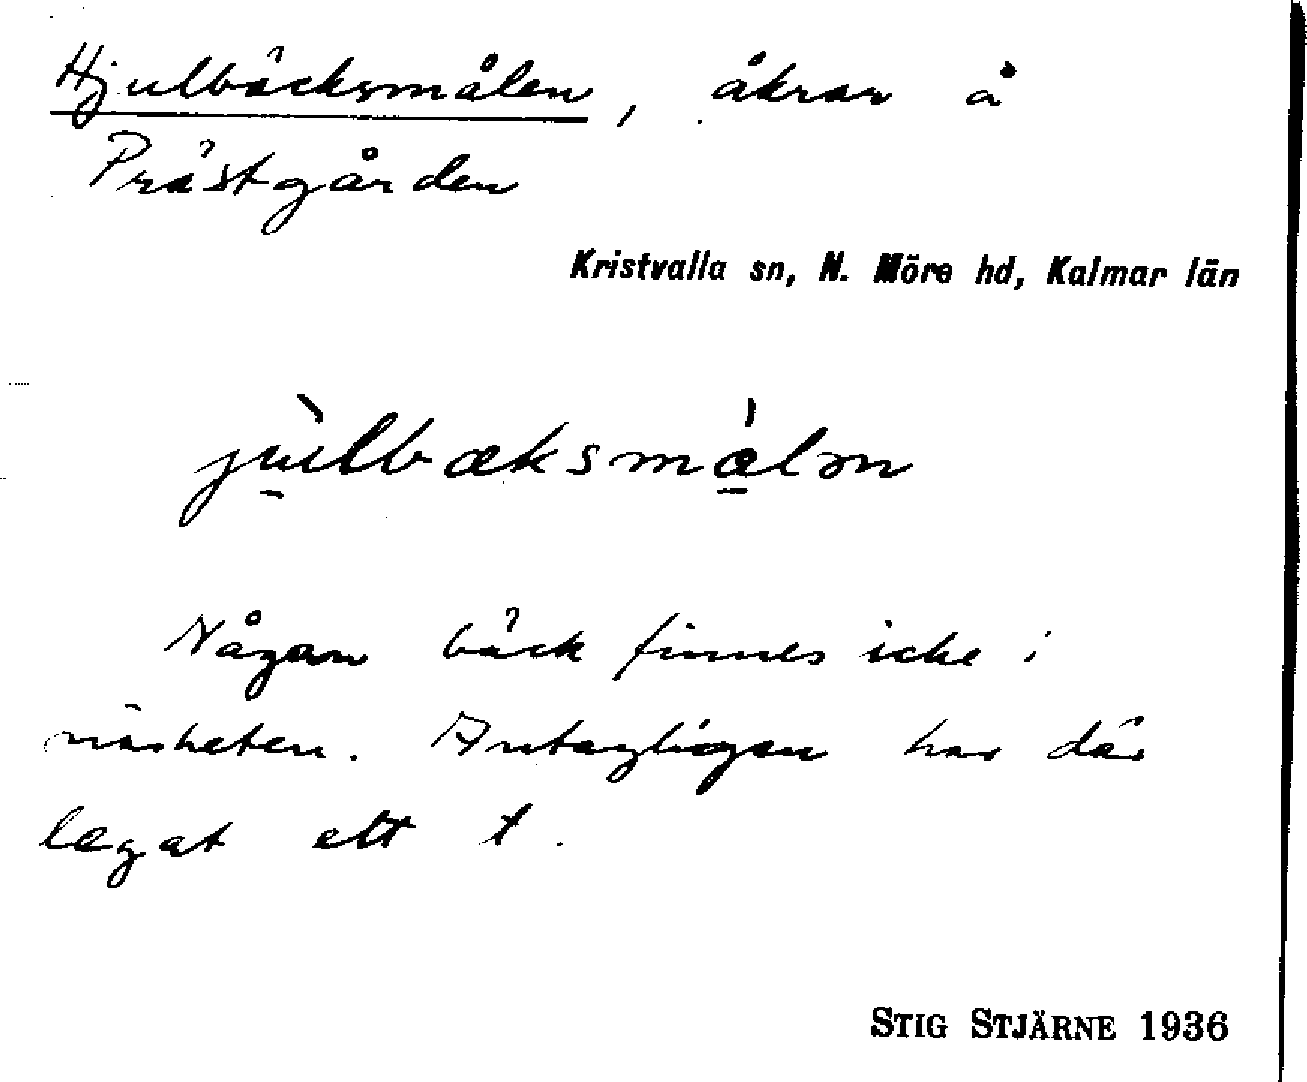 Hjulbäcksmålen, åkrar å
Prästgården
Kristvalla sn, N. Möre hd, Kalmar län
jùlbæksmålm
Någon bäck finnes icke i
närheten. Antagligen har där
legat ett t.
STIG STJÄRNE 1936